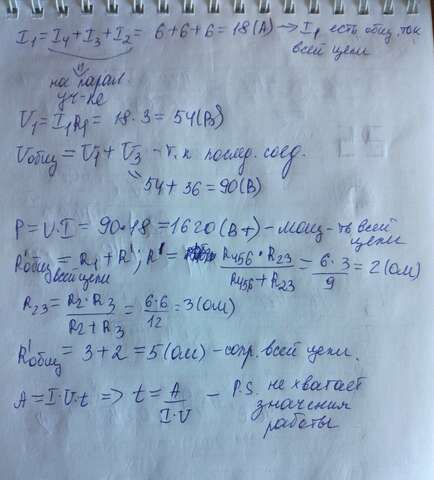 I₁ = I₄ + I₃ + I₂ = 6 + 6 + 6 = 18 (А) → I₁ есть общ. ток
всей цепи
на парал.
уч-ке
U₁ = I₁R₁ = 18 · 3 = 54 (В)
Uобщ = U₁ + U₃ - т.к послед. соед.
54 + 36 = 90 (В)
P = U · I = 90 · 18 = 1620 (Вт) - мощ-ть всей
цепи
R'общ = R₁ + R'; R' = R₄₅₆ · R₂₃ / R₄₅₆ + R₂₃ = 6 · 3 / 9 = 2 (Ом)
всей цепи
R₂₃ = R₂ · R₃ / R₂ + R₃ = 6 · 6 / 12 = 3 (Ом)
R'общ = 3 + 2 = 5 (Ом) - сопр. всей цепи.
A = I · U · t => t = A / I · U - P.S. не хватает
значения
работы